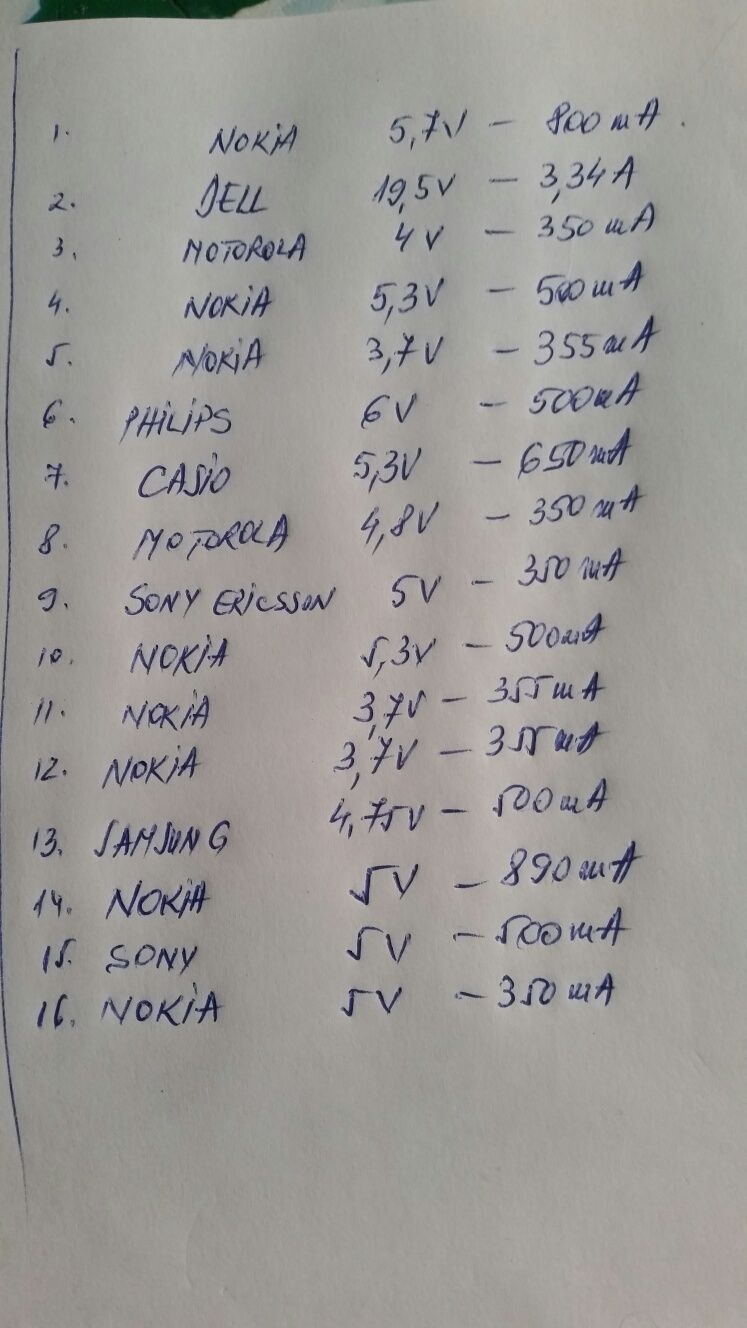 1. NOKiA 5,7V - 800 mA.
2. DELL 19,5V - 3,34A
3. MOTOROLA 4V - 350 mA
4. NOKiA 5,3V - 500 mA
5. NOKiA 3,7V - 355 mA
6. PHiLiPS 6V - 500mA
7. CASiO 5,3V - 650 mA
8. MOTOROLA 4,8V - 350 mA
9. SONY ERiCSSON 5V - 350 mA
10. NOKiA 5,3V - 500mA
11. NOKiA 3,7V - 355 mA
12. NOKiA 3,7V - 355 mA
13. SAMSUNG 4,75V - 500mA
14. NOKiA 5V - 890 mA
15. SONY 5V - 500 mA
16. NOKiA 5V - 350 mA